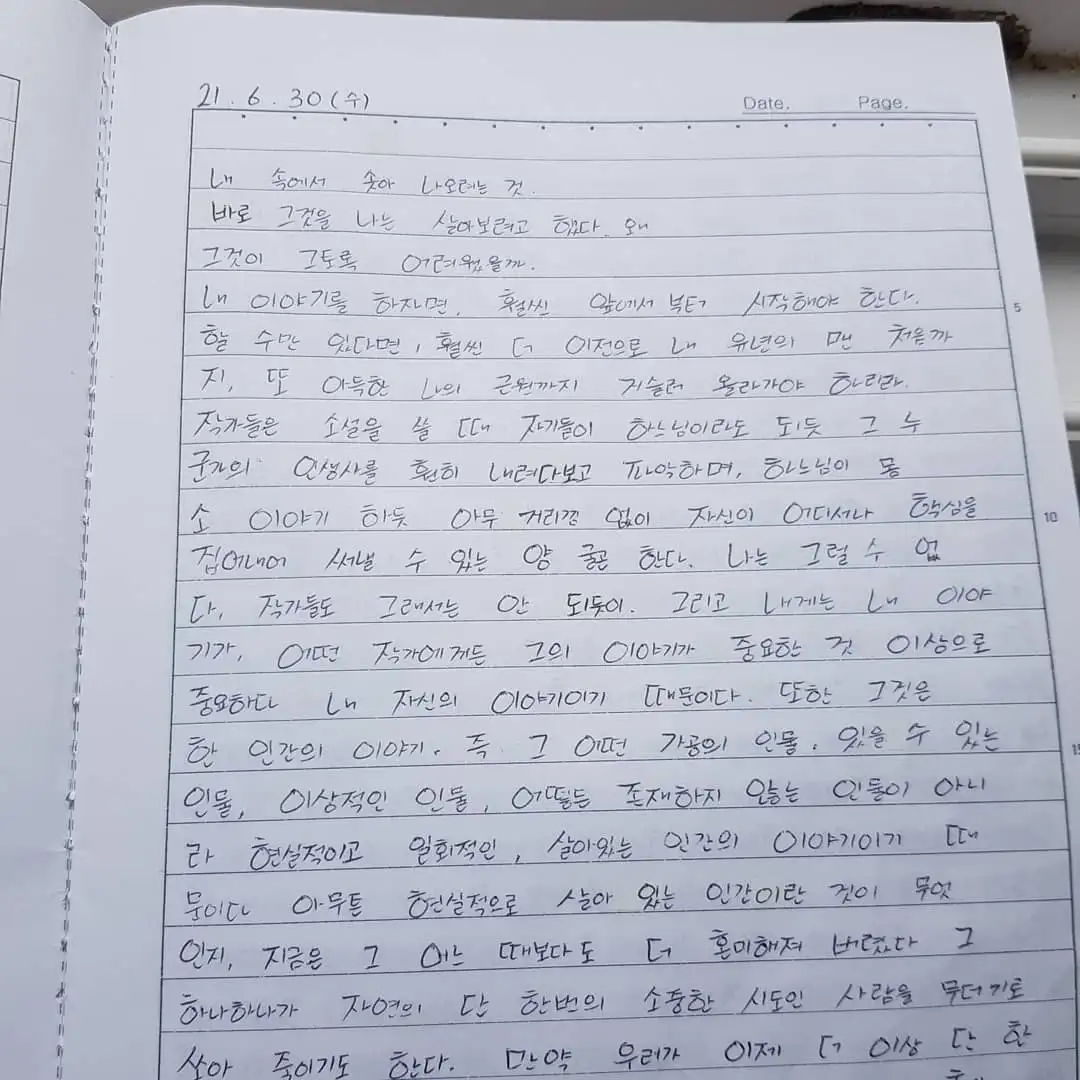 21. 6. 30 (수)
Date. Page.
내 속에서 솟아 나오려는 것.
바로 그것을 나는 살아보려고 했다. 왜
그것이 그토록 어려웠을까.
내 이야기를 하자면, 훨씬 앞에서부터 시작해야 한다.
5
할 수만 있다면, 훨씬 더 이전으로 내 유년의 맨 처음까
지, 또 아득한 나의 근원까지 거슬러 올라가야 하리라.
작가들은 소설을 쓸 때 자기들이 하느님이라도 되듯 그 누
군가의 인생사를 훤히 내려다보고 파악하며, 하느님이 몸
소 이야기 하듯 아무 거리낌 없이 자신이 어디서나 핵심을
10
집어내어 써낼 수 있는 양 굴곤 한다. 나는 그럴 수 없
다, 작가들도 그래서는 안 되듯이. 그리고 내게는 내 이야
기가, 어떤 작가에게든 그의 이야기가 중요한 것 이상으로
중요하다 내 자신의 이야기이기 때문이다. 또한 그것은
한 인간의 이야기. 즉 그 어떤 가공의 인물. 있을 수 있는
15
인물, 이상적인 인물, 어떻든 존재하지 않는 인물이 아니
라 현실적이고 일회적인, 살아있는 인간의 이야기이기 때
문이다 아무튼 현실적으로 살아 있는 인간이란 것이 무엇
인지, 지금은 그 어느 때보다도 더 혼미해져 버렸다 그
하나하나가 자연의 단 한번의 소중한 시도인 사람을 무더기로
쏘아 죽이기도 한다. 만약 우리가 이제 더 이상 단 한